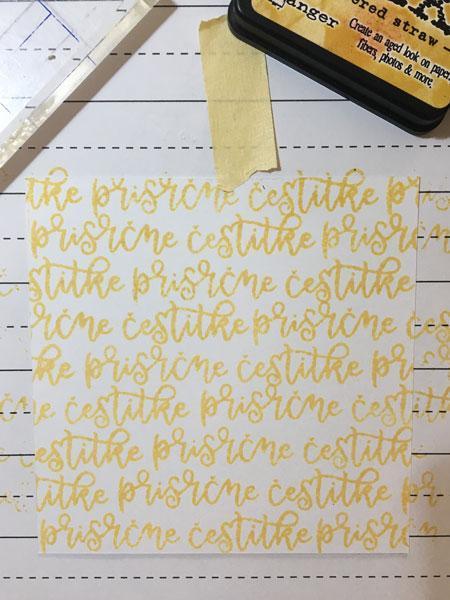 anger
ered straw
Create an aged look on paper,
fibers, photos & more.
tke prisrčne čestitke pr
prisrčne čestitke
čestitke prisrčne čestitke
rčne čestitke prisrčne
ke prisrčne čestitke prisrčne
čestitke prisrčne čestitke
čestitke prisrčne čestitke
itke prisrčne čestitke
prisrčne čestitke prisr